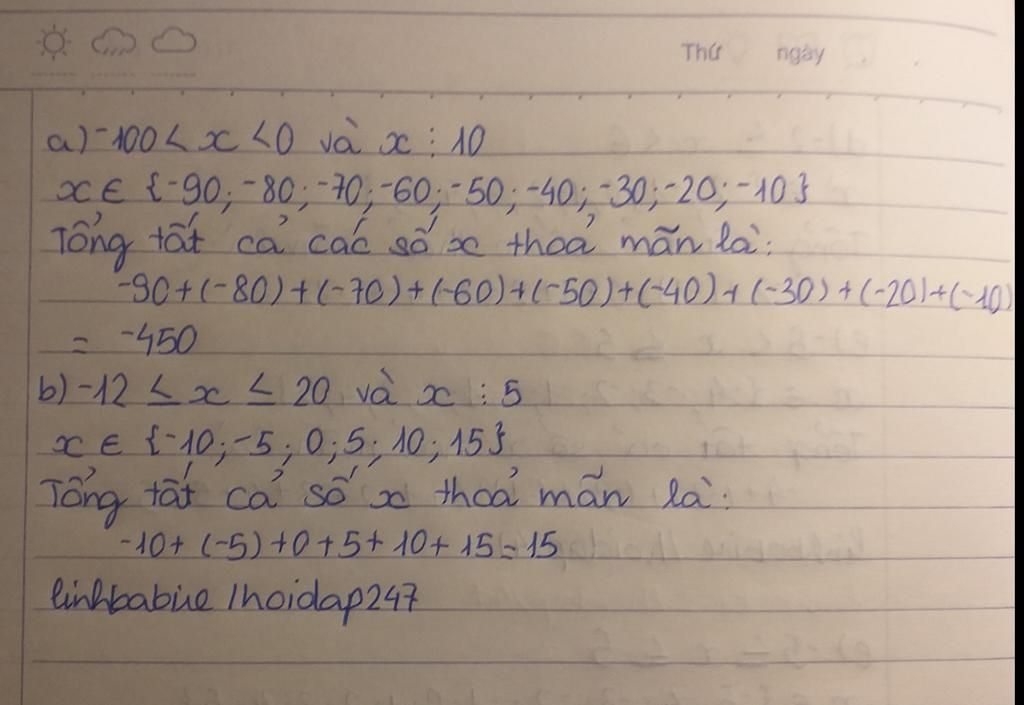 Thứ ngày
a) -100 < x < 0 và x ⋮ 10
x ∈ {-90; -80; -70; -60; -50; -40; -30; -20; -10}
Tổng tất cả các số x thoả mãn là:
-90 + (-80) + (-70) + (-60) + (-50) + (-40) + (-30) + (-20) + (-10)
= -450
b) -12 ≤ x ≤ 20 và x ⋮ 5
x ∈ {-10; -5; 0; 5; 10; 15}
Tổng tất cả số x thoả mãn là:
-10 + (-5) + 0 + 5 + 10 + 15 = 15
linhbabie /hoidap247